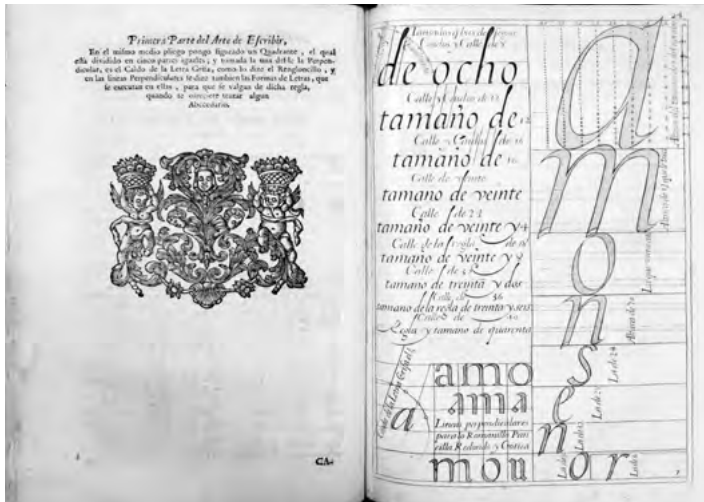 Primera Parte del Arte de Escribir,
En el mismo medio pliego pongo figurado un Quadrante, el qual
está dividido en cinco partes iguales, y tomada la una desde la Perpen-
dicular, es el Caldo de la Letra Grifa, como lo dice el Rengloncillo, y
en las lineas Perpendiculares se dize tambien las Formas de Letras, que
se executan en ellas, para que se valgan de dicha regla,
quando se ofreciere tratar algun
Abecedario.
CA-
de ocho
Calle y Caidos de 12
tamaño de 12
Calle y Caidos de 16
tamaño de 16
Calle de veinte
tamano de veinte
Calle de 24
tamaño de veinte y 4
Calle de la regla de 28
tamaño de veinte y 8
Calle de 32
tamaño de treinta y dos
Calle de 36
tamano de la regla de treinta y seis
Calle de 40
Regla y tamano de quarenta
a
amo
ama
Lineas perpendiculares
para la Romanilla Pan-
cilla Redondo y Gotica
mou
a
m
o
n
s
La de 24
e
n
or